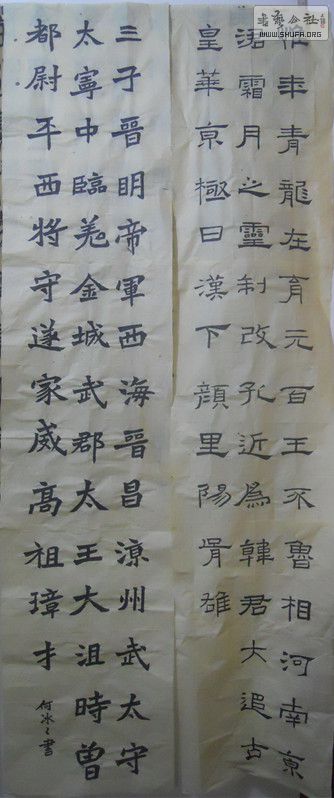 書藝公社
WWW.SHUFA.ORG
惟年青龍在育元百王不魯相河南京
涒霜月之靈制改孔近爲韓君大追古
皇華京極日漢下顏里陽胥雄
三子晉明帝軍西海晉昌涼州武太守
太寧中臨羌金城武郡太王大沮時曾
都尉平西將守遂家威高祖璋才
何冰之書